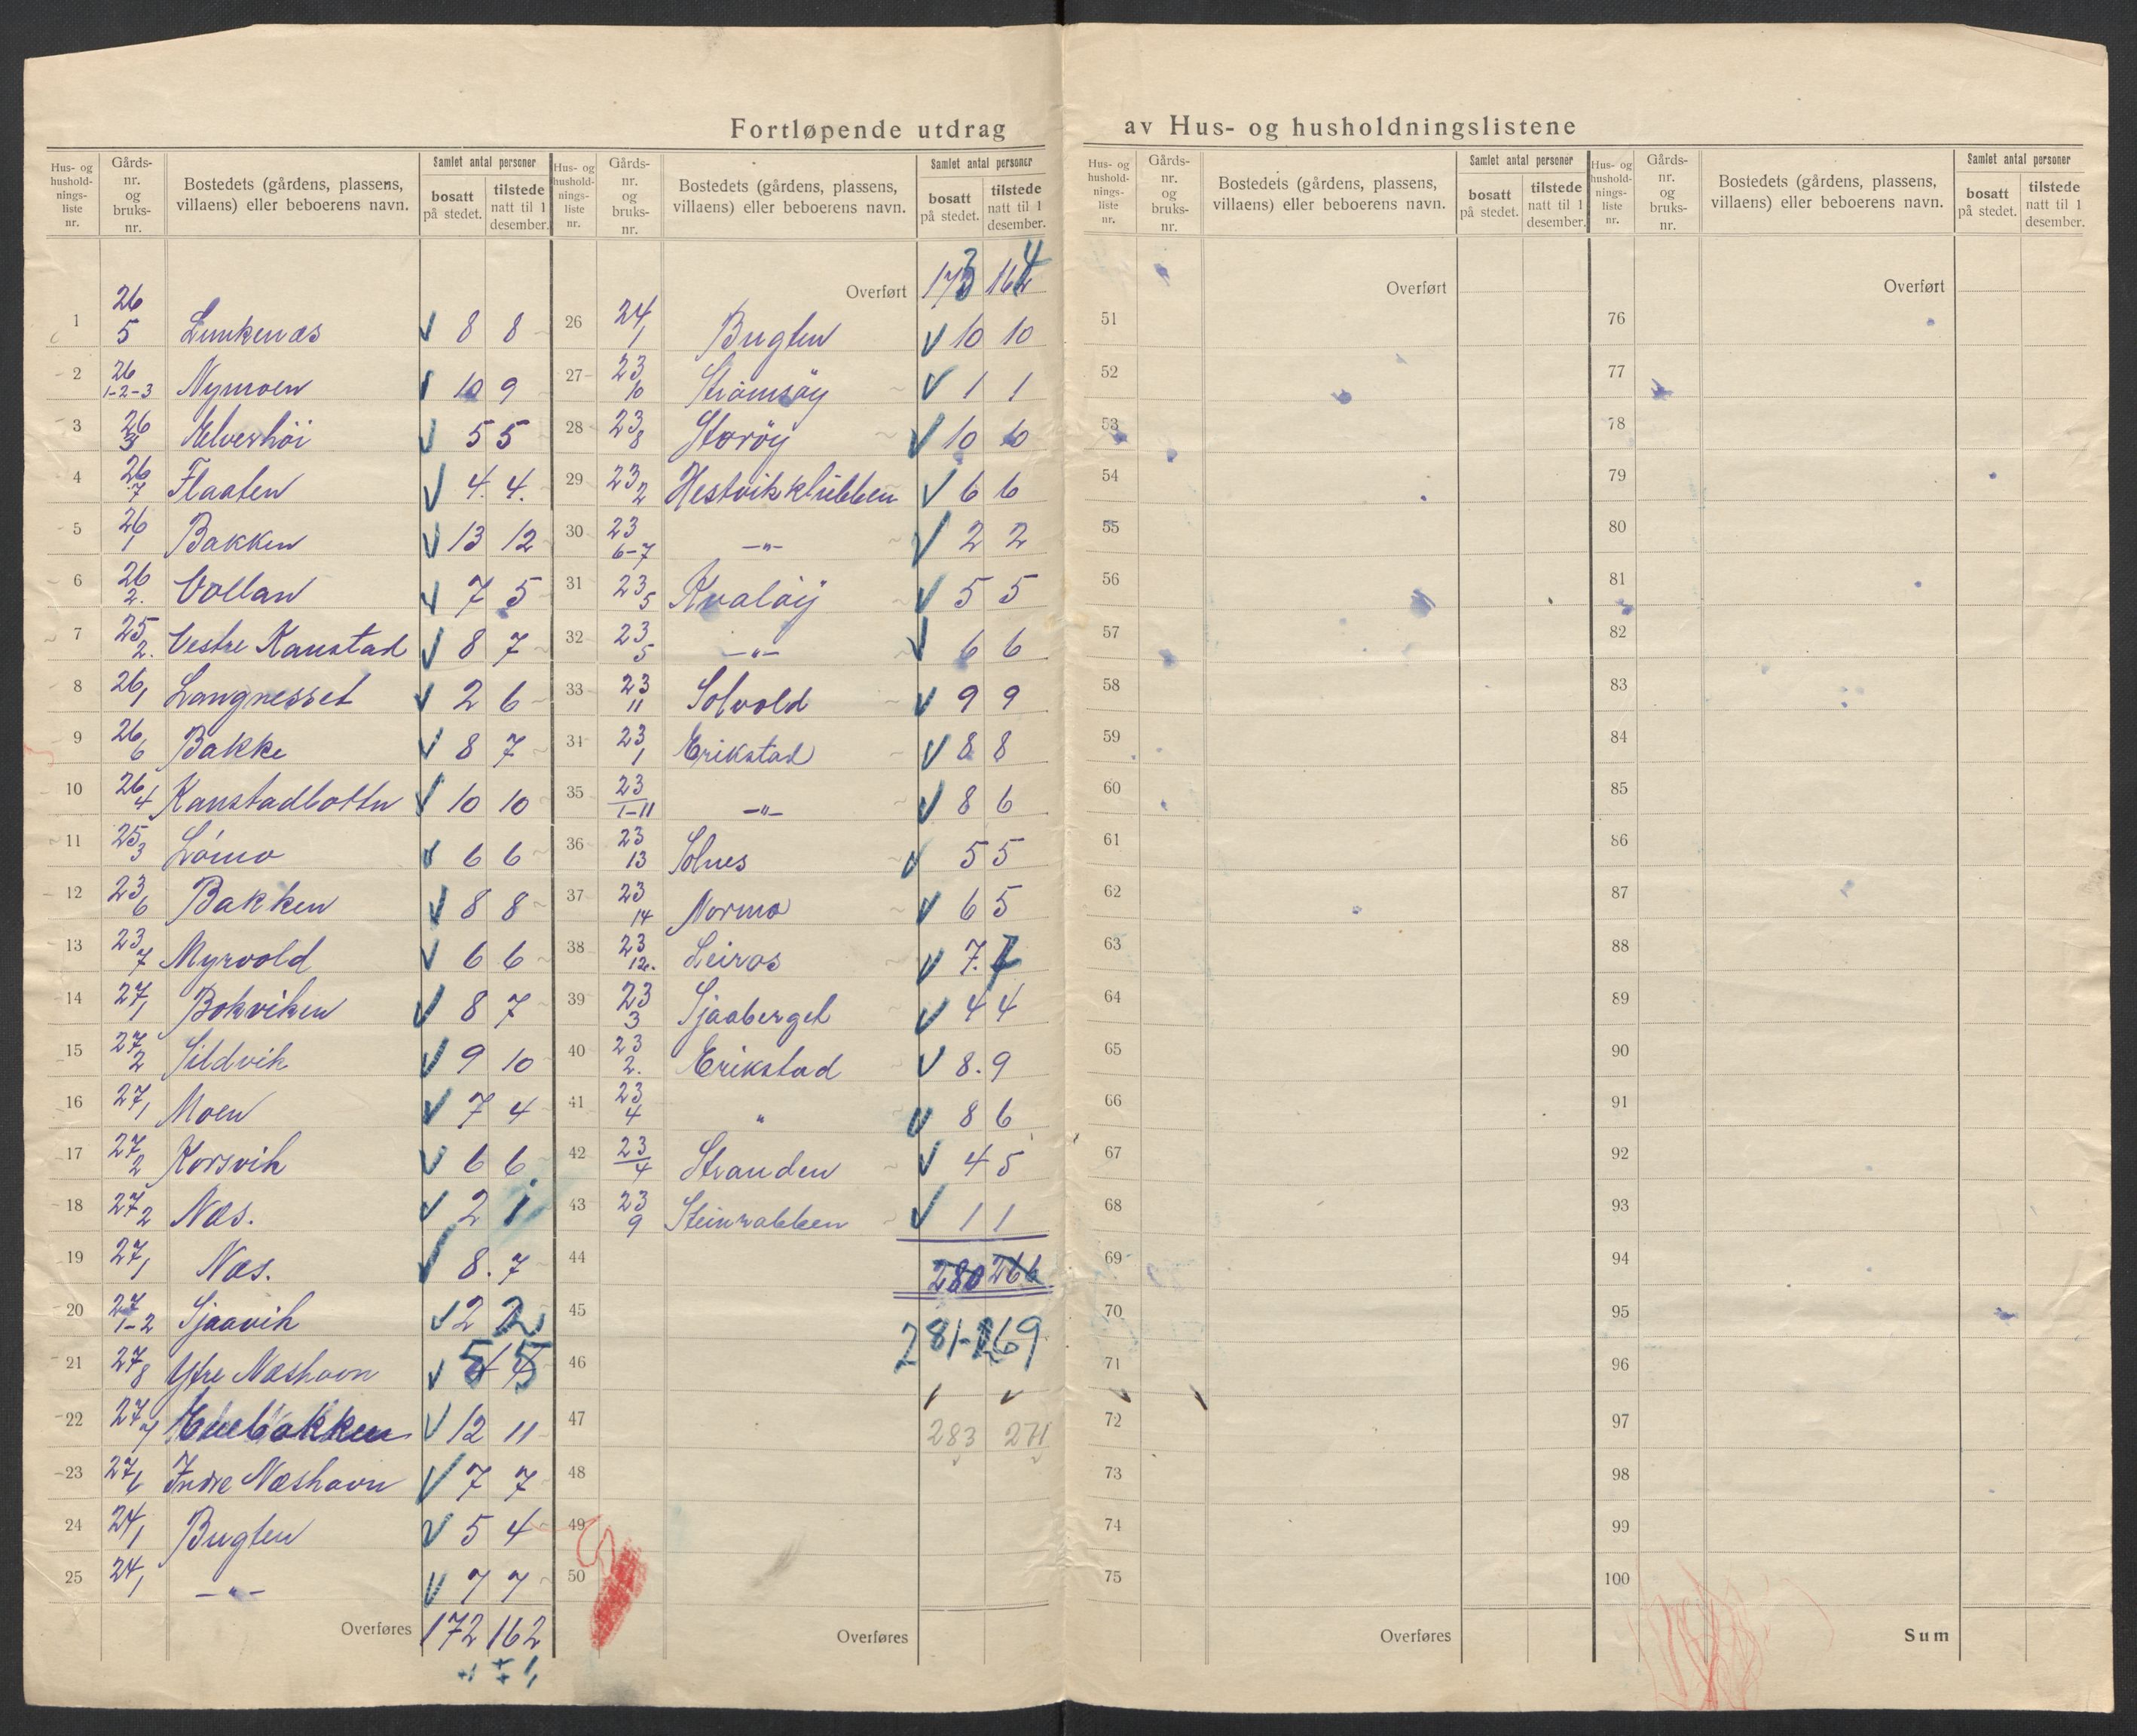 Fortløpende utdrag av Hus- og husholdningslistene
Hus- og hushold- nings- liste nr. | Gårds- nr. og bruks- nr. | Bostedets (gårdens, plassens, villaens) eller beboerens navn. | Samlet antal personer | bosatt på stedet. | tilstede natt til 1 desember.
1 26 5 Lunkenæs 8 8
2 26 1-2-3 Nymoen 10 9
3 26 3 Elverhöi 5 5
4 26 7 Flaaten 4. 4.
5 26 1 Bakken 13 12
6 26 2. Vollan 7 5
7 25 2. Vestre Kanstad 8 7
8 26 1 Langnesset 2 6
9 26 6 Bakke 8 7
10 26 4 Kanstadbotten 10 10
11 25 3 Lömo 6 6
12 23 6 Bakken 8 8
13 23 7 Myrvold 6 6
14 27 1 Bokviken 8 7
15 27 2 Sildvik 9 10
16 27 1 Moen 7 4
17 27 2 Korsvik 6 6
18 27 2 Næs. 2 1
19 27 1 Næs. 8. 7
20 27 1-2 Sjaavik 2 2
21 27 8 Ytre Næshavn 5 5
22 27 7 12 11
23 27 6 Indre Næshavn 7 7
24 24 1 Bugten 5 4
25 24 1 —"— 7 7
Overføres 172 162
+1 +1
Hus- og hushold- nings- liste nr. | Gårds- nr. og bruks- nr. | Bostedets (gårdens, plassens, villaens) eller beboerens navn. | Samlet antal personer | bosatt på stedet. | tilstede natt til 1 desember.
Overført 173 164
26 24 1 Bugten 10 10
27 23 10 Strömsöy 1 1
28 23 8 Storöy 10 10
29 23 2 Hestvikklubben 6 6
30 23 6-7 —"— 2 2
31 23 5 Kvalöy 5 5
32 23 5 —"— 6 6
33 23 11 Solvold 9 9
34 23 1 Erikstad 8 8
35 23 1-11 —"— 8 6
36 23 13 Solnes 5 5
37 23 14 Normo 6 5
38 23 12. Leiros 7. 7
39 23 3 Sjaaberget 4 4
40 23 2. Erikstad 8. 9
41 23 4 " 8 6
42 23 4 Stranden 4 5
43 23 9 Steinrabben 1 1
44 280 266
45 281-269
46
47 283 271
48
49
50
Overføres
Hus- og hushold- nings- liste nr. | Gårds- nr. og bruks- nr. | Bostedets (gårdens, plassens, villaens) eller beboerens navn. | Samlet antal personer | bosatt på stedet. | tilstede natt til 1 desember.
Overført
51
52
53
54
55
56
57
58
59
60
61
62
63
64
65
66
67
68
69
70
71
72
73
74
75
Overføres
Hus- og hushold- nings- liste nr. | Gårds- nr. og bruks- nr. | Bostedets (gårdens, plassens, villaens) eller beboerens navn. | Samlet antal personer | bosatt på stedet. | tilstede natt til 1 desember.
Overført
76
77
78
79
80
81
82
83
84
85
86
87
88
89
90
91
92
93
94
95
96
97
98
99
100
Sum